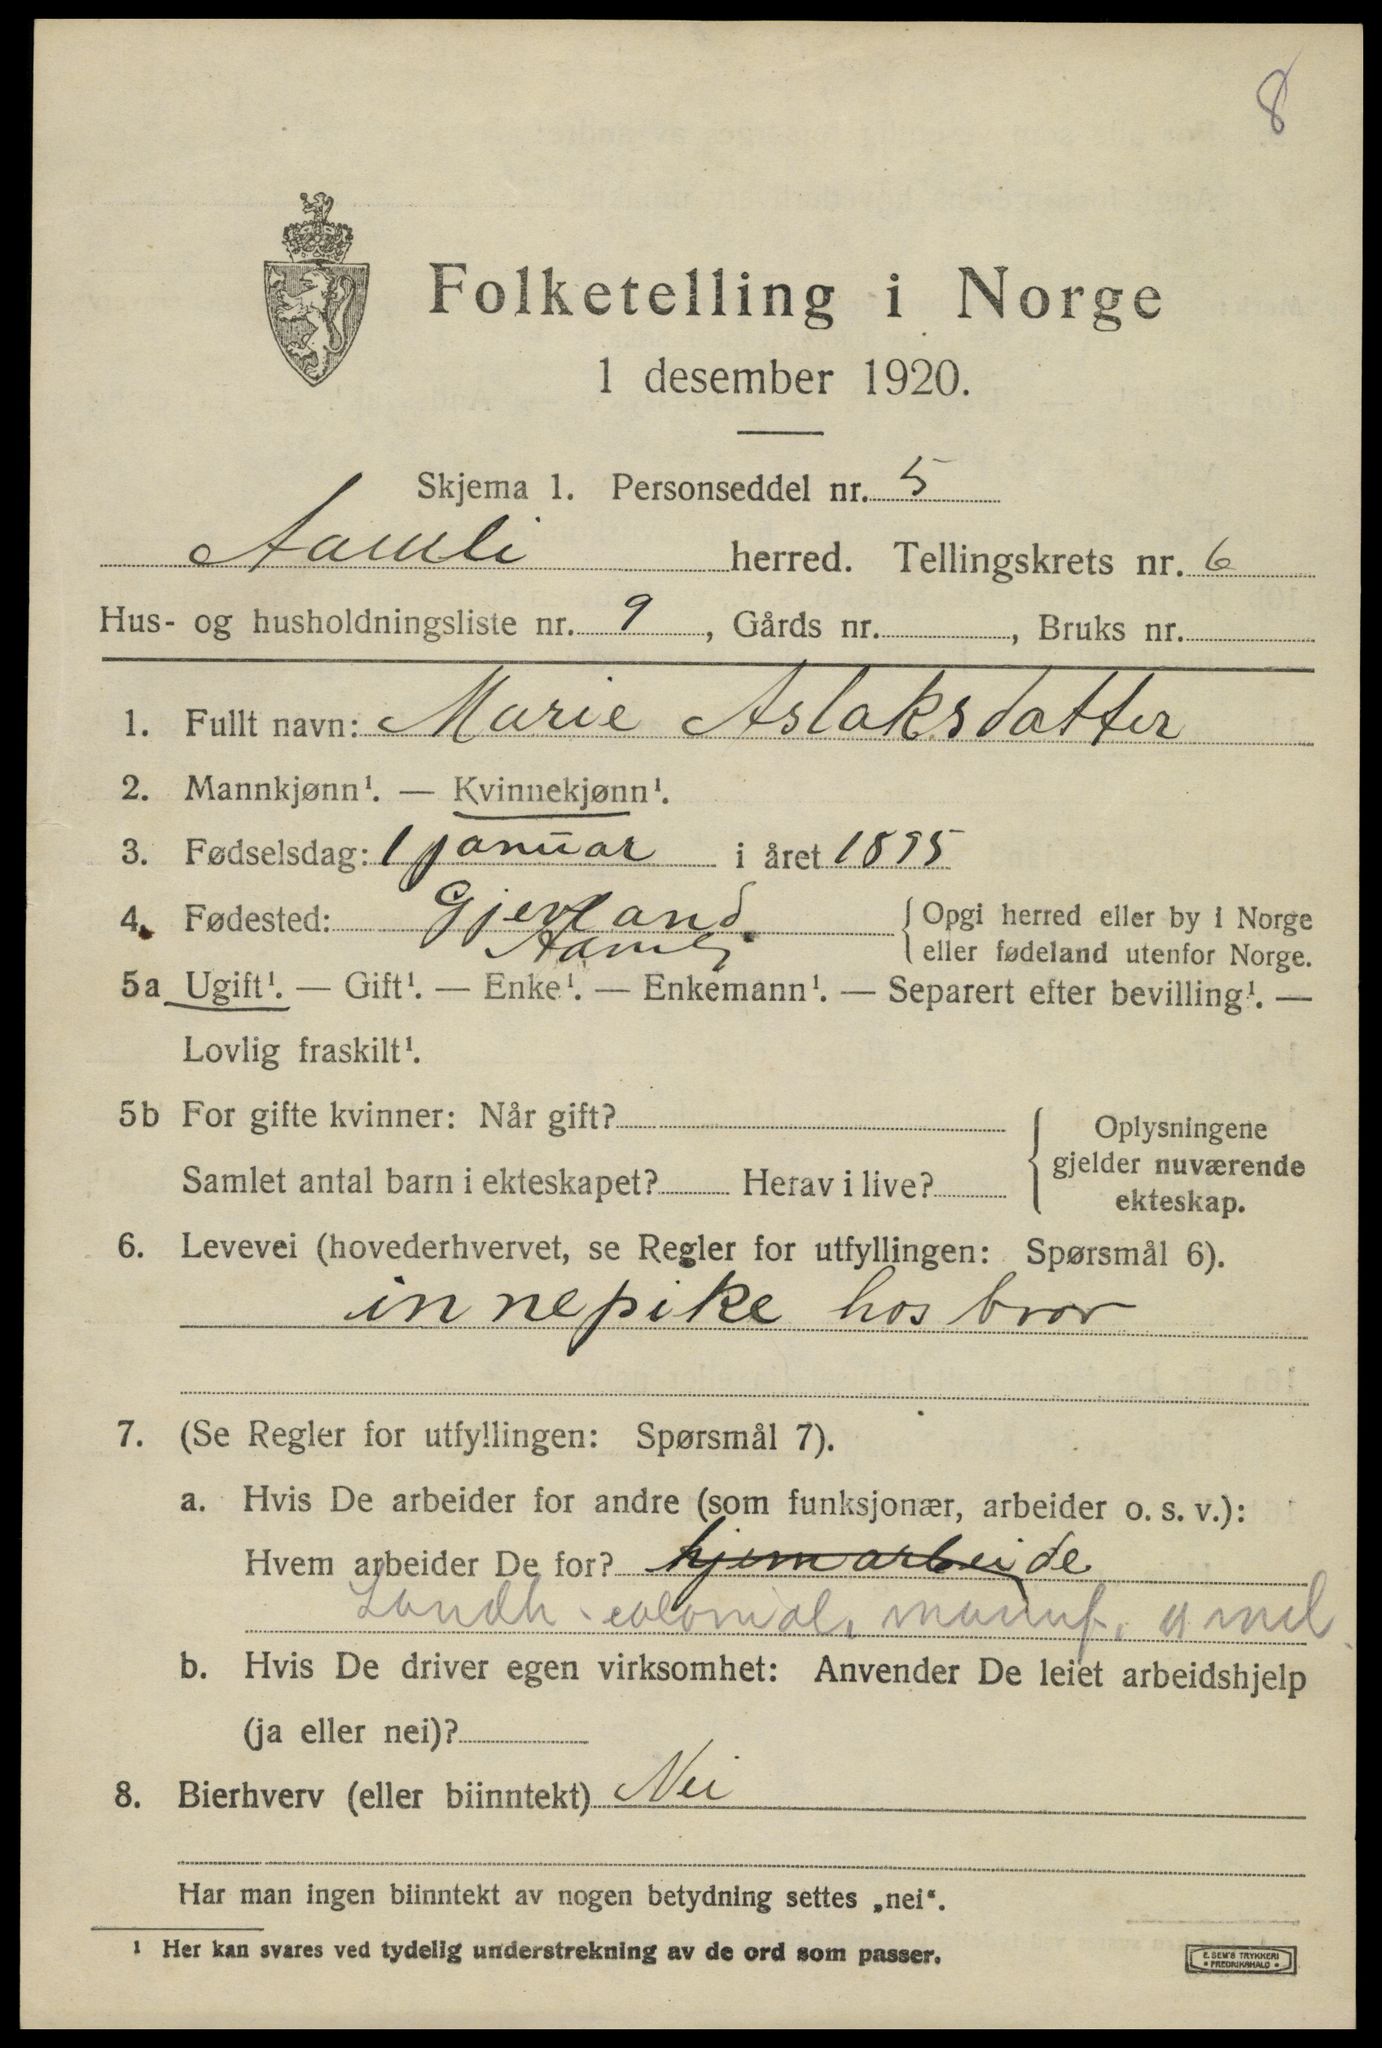 8
Folketelling i Norge
1 desember 1920.
Skjema 1. Personseddel nr. 5
Aamli herred. Tellingskrets nr. 6
Hus- og husholdningsliste nr. 9, Gårds nr. , Bruks nr.
1. Fullt navn: Marie Aslaksdatter
2. Mannkjønn¹. — Kvinnekjønn¹.
3. Fødselsdag: 1 januar i året 1895
4. Fødested: Gjevland { Opgi herred eller by i Norge
Aamli eller fødeland utenfor Norge.
5a Ugift¹. — Gift¹. — Enke¹. — Enkemann¹. — Separert efter bevilling¹. —
Lovlig fraskilt¹.
5b For gifte kvinner: Når gift? { Oplysningene
gjelder nuværende
Samlet antal barn i ekteskapet? Herav i live?
ekteskap.
6. Levevei (hovederhvervet, se Regler for utfyllingen: Spørsmål 6).
innepike hos bror
7. (Se Regler for utfyllingen: Spørsmål 7).
a. Hvis De arbeider for andre (som funksjonær, arbeider o. s. v.):
Hvem arbeider De for? hjemarbeide
Landh. colonial, manuf. 
b. Hvis De driver egen virksomhet: Anvender De leiet arbeidshjelp
(ja eller nei)?
8. Bierhverv (eller biinntekt) Nei
Har man ingen biinntekt av nogen betydning settes „nei“.
¹ Her kan svares ved tydelig understrekning av de ord som passer.
E. SEM'S TRYKKERI
• FREDRIKSHALD •